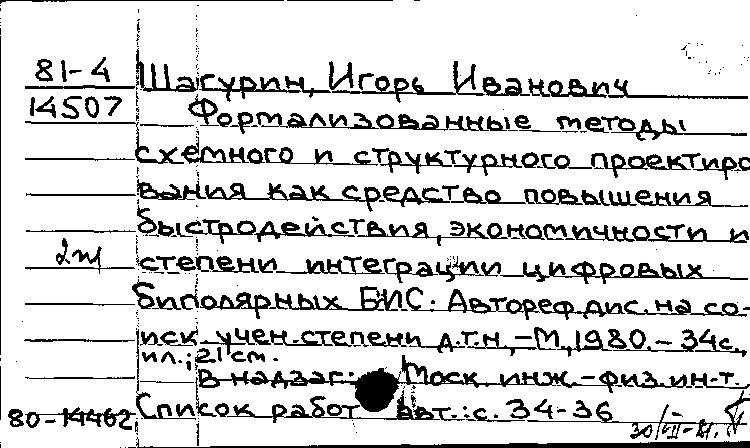 81-4 Шагурин, Игорь Иванович
14507 Формализованные методы
схемного и структурного проектиро
вания как средство повышения
быстродействия, экономичности и
2м степени интеграции цифровых
биполярных БИС: Автореф.дис. на со-
иск. учен. степени д.т.н,-М.,1980.-34с.,
ил.; 21см.
В надзаг.: Моск инж.-физ.ин-т.
80-14462 Список работ авт.: с. 34-36
30/VII-81.